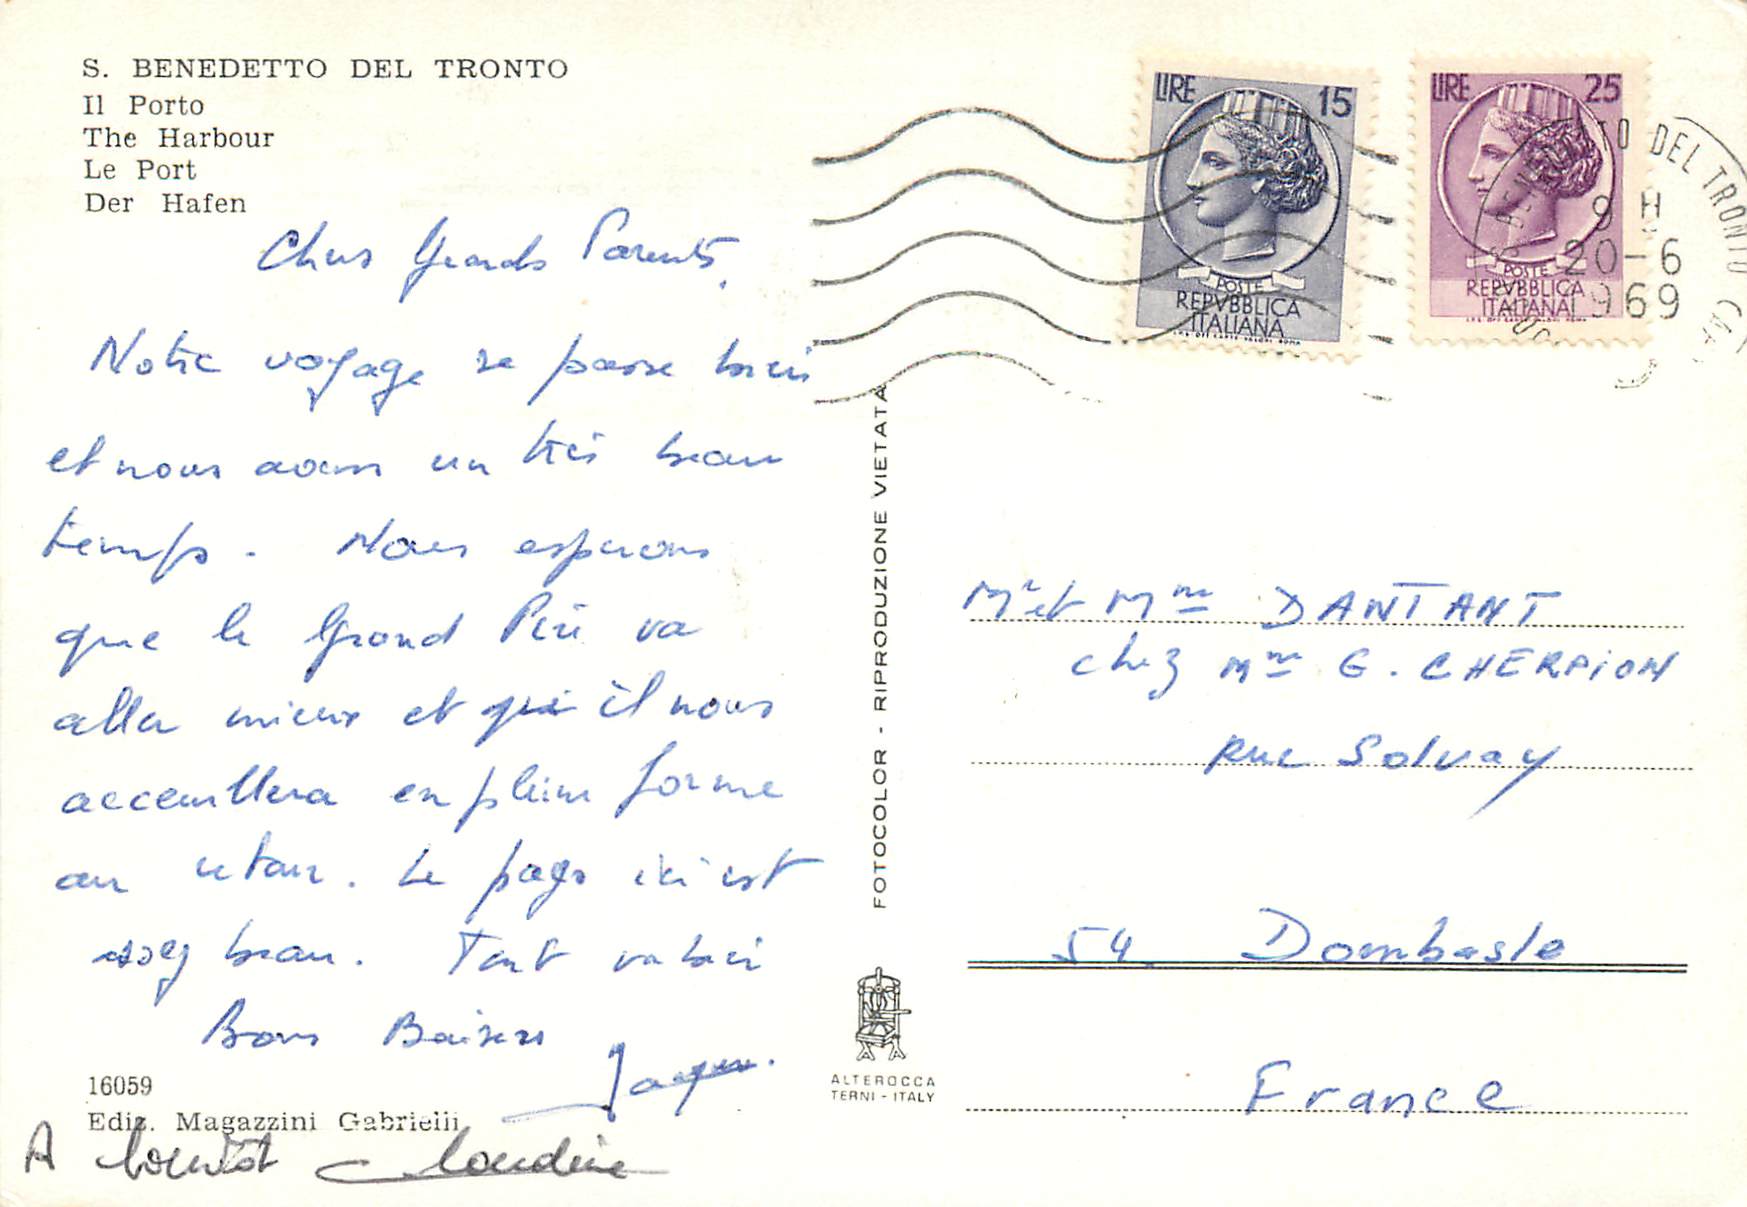 S. BENEDETTO DEL TRONTO
Il Porto
The Harbour
Le Port
Der Hafen
Chers Grands Parents,
Notre voyage se passe bien
et nous avons un très beau
temps. Nous esperons
que le Grand Père va
aller mieux et qui il nous
acceuillera en pleine forme
au retour. Le pays ici est
assez beau. Tout va bien
Bons Baisers
Jacques.
16059
Ediz. Magazzini Gabrielli
A bientôt Claudine
FOTOCOLOR - RIPRODUZIONE VIETATA
ALTEROCCA
TERNI - ITALY
LIRE 15
POSTE
REPVBBLICA
ITALIANA
I.P.S. OFF. CARTE VALORI ROMA
LIRE 25
POSTE
REPVBBLICA
ITALIANA
I.P.S. OFF. CARTE VALORI ROMA
S. BENEDETTO DEL TRONTO
9 H
20-6
1969
Mr et Mme DANTANT
chez Mme G. CHERPION
Rue Solvay
54 Dombasle
France